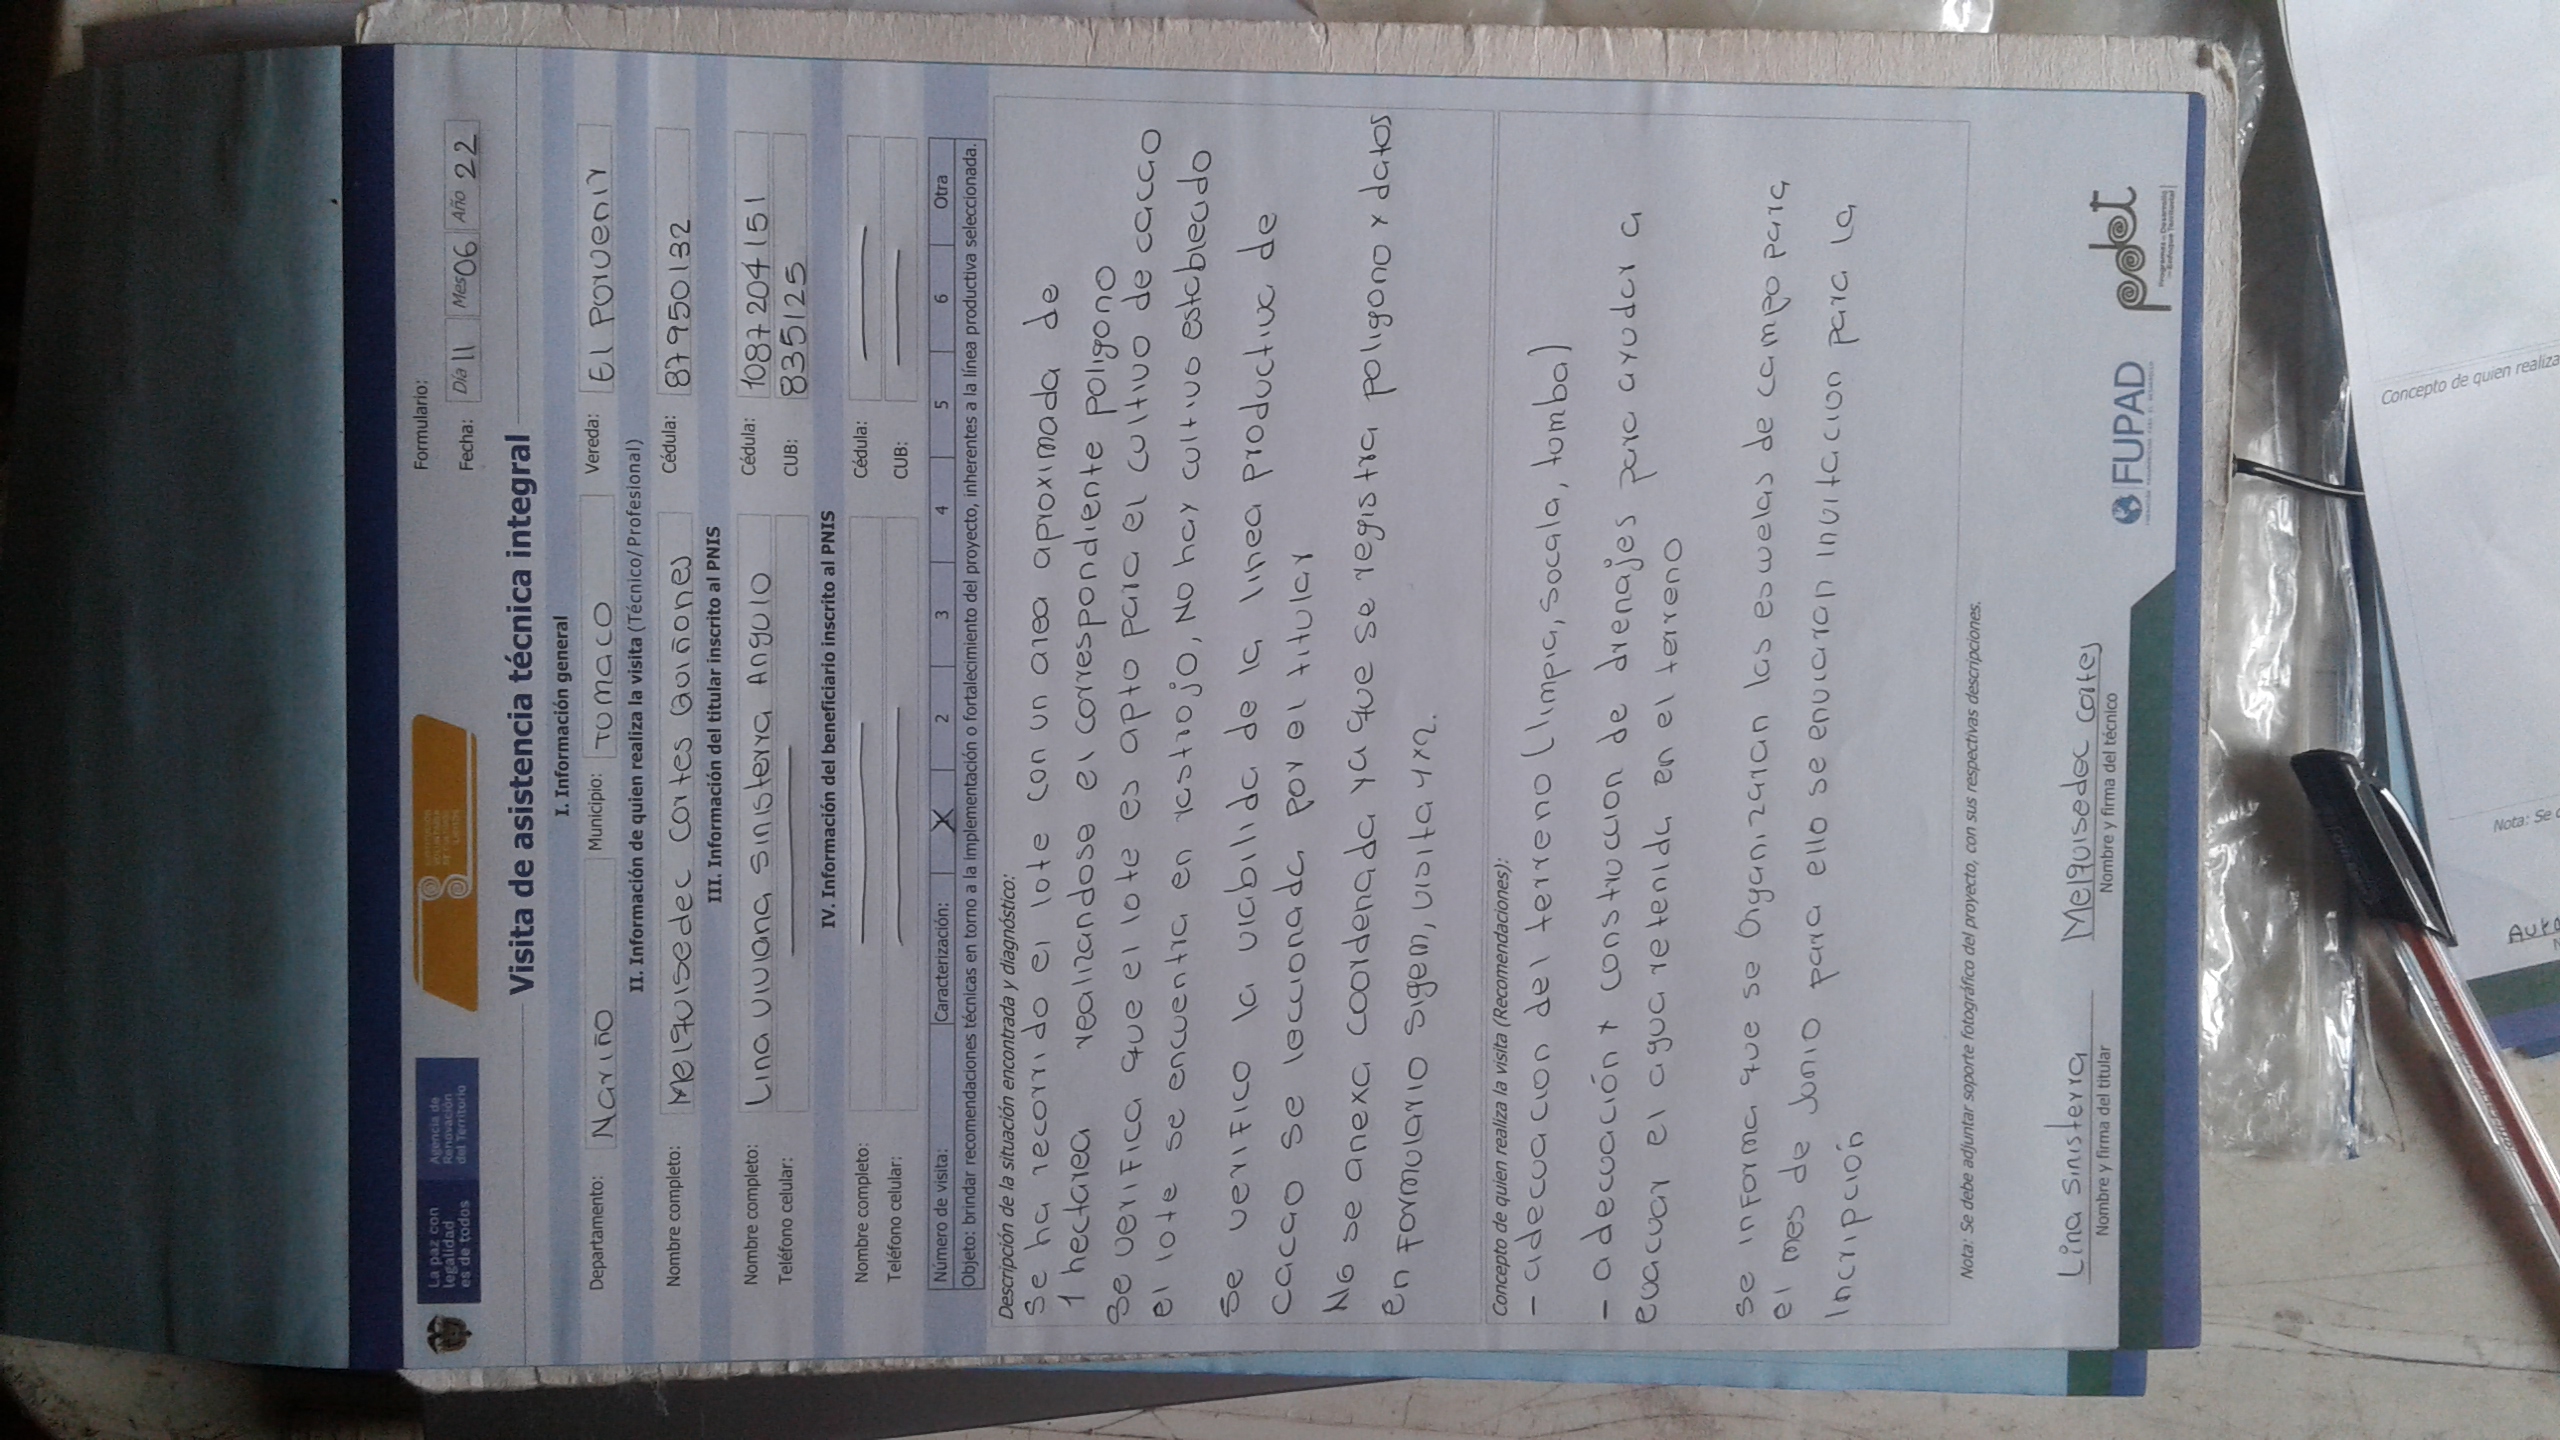 La paz con
legalidad
es de todos
Agencia de
Renovación
del Territorio
Formulario:
Fecha: Día 11 Mes 06 Año 22
Visita de asistencia técnica integral
I. Información general
Departamento: Nariño Municipio: Tumaco Vereda: El Porvenir
II. Información de quien realiza la visita (Técnico/Profesional)
Nombre completo: Melquisedec Cortes Quiñones Cédula: 87950132
III. Información del titular inscrito al PNIS
Nombre completo: Lina Viviana Sinisterra Angulo Cédula: 1087204151
Teléfono celular: — CUB: 835125
IV. Información del beneficiario inscrito al PNIS
Nombre completo: — Cédula: —
Teléfono celular: — CUB: —
Número de visita: Caracterización: X 2 3 4 5 6 Otra
Objeto: brindar recomendaciones técnicas en torno a la implementación o fortalecimiento del proyecto, inherentes a la línea productiva seleccionada.
Descripción de la situación encontrada y diagnóstico:
Se ha recorrido el lote con un area aproximada de
1 hectarea realizandose el correspondiente poligono
Se verifica que el lote es apto para el cultivo de cacao
el lote se encuentra en rastrojo, No hay cultivo estableado
Se verifico la viabilida de la linea productiva de
cacao se leccionada por el titular
No se anexa coordenada ya que se registra poligono y datos
en formulario sigem, visita 1x2.
Concepto de quien realiza la visita (Recomendaciones):
- adecuacion del terreno (limpia, socala, tumba)
- adecuación y construccion de drenajes para ayudar a
evacuar el agua retenida en el terreno
se informa que se organizaran las escuelas de campo para
el mes de Junio para ello se enviaran invitacion para la
Incripción
Nota: Se debe adjuntar soporte fotográfico del proyecto, con sus respectivas descripciones.
Lina Sinisterra
Nombre y firma del titular
Melquisedec Cortes
Nombre y firma del técnico
FUPAD
pdet
Concepto de quien realiza
Nota: Se